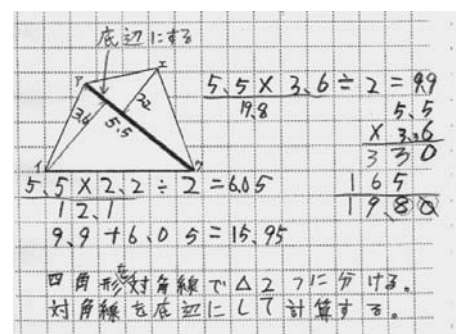 底辺にする
ア
エ
3.6
5.5
2.2
イ
ウ
5.5 × 3.6 ÷ 2 = 9.9
19.8
5.5
× 3.6
330
165
19.80
5.5 × 2.2 ÷ 2 = 6.05
12.1
9.9 + 6.05 = 15.95
四角形を対角線で△2つに分ける。
対角線を底辺にして計算する。